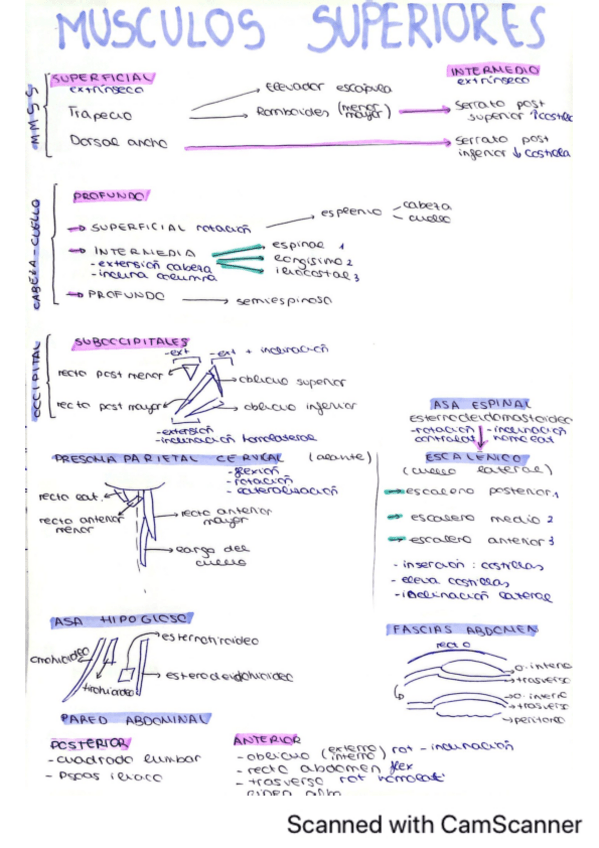 MUSCULOS SUPERIORES
MMSS
SUPERFICIAL
extrínseco
Trapecio
Dorsal ancho
elevador escapula
Romboides (menor
mayor)
INTERMEDIO
extrínseco
Serrato post
superior ↑costilla
Serrato post
inferior ↓ costilla
CABEZA-CUELLO
PROFUNDO
SUPERFICIAL rotación
esplenio
cabeza
cuello
INTERMEDIA
-extensión cabeza
-inclina columna
espinal 1
longísimo 2
iliocostal 3
PROFUNDO
semiespinoso
OCCIPITAL
SUBOCCIPITALES
-ext
-ext + inclinación
recto post menor
oblicuo superior
recto post mayor
oblicuo inferior
-extensión
-inclinación homolateral
ASA ESPINAL
esternocleidomastoideo
-rotación
contralat
-inclinación
homolat
PRESOMA PARIETAL CERVICAL (delante)
-flexión
-rotación
-lateralización
recto lat.
recto anterior
menor
recto anterior
mayor
largo del
cuello
ESCALENICO
(cuello lateral)
escaleno posterior 1
escaleno medio 2
escaleno anterior 3
-inserción: costillas
-eleva costillas
-inclinación lateral
ASA HIPOGLOSO
omohioideo
tirohioideo
esternotiroideo
esternocleidohioideo
FASCIAS ABDOMEN
recto
o. interno
trasverso
o. interno
trasverso
peritoneo
PARED ABDOMINAL
POSTERIOR
-cuadrado lumbar
-psoas iliaco
ANTERIOR
-oblicuo (externo
interno) rot - inclinación
-recto abdomen flex
-trasverso rot homolat
Scanned with CamScanner